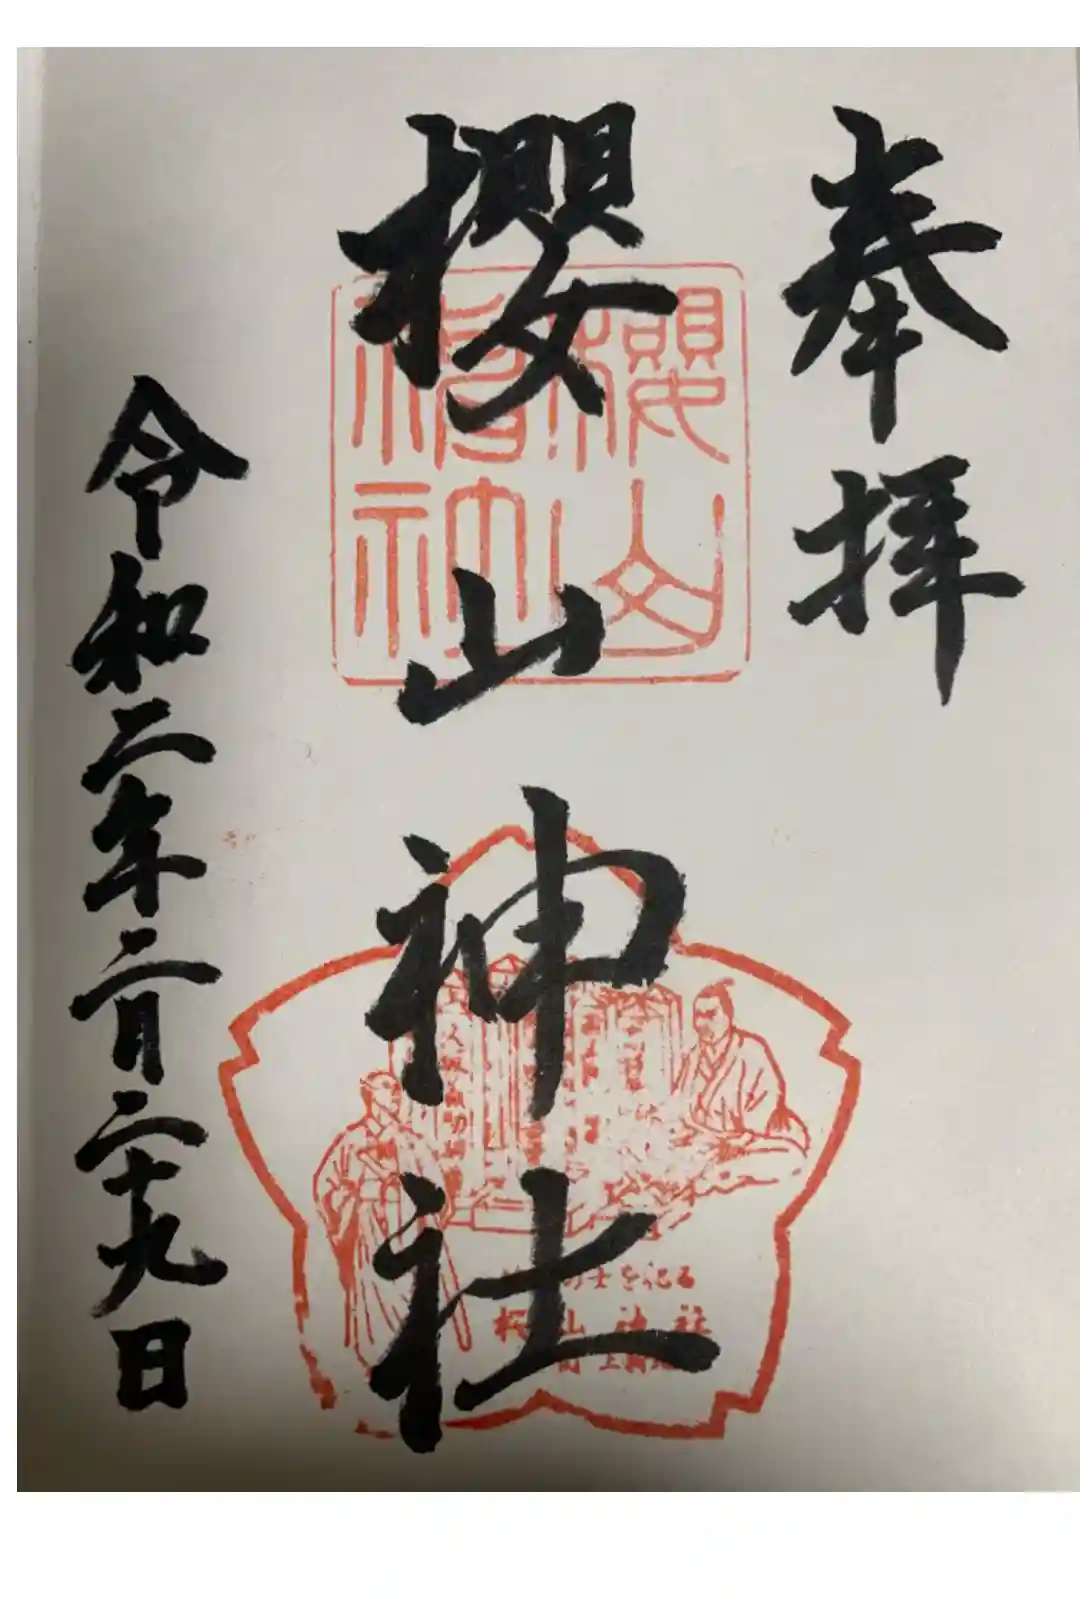 奉拝
櫻山神社
櫻山神社
の士を祀る
桜山神社
令和二年二月二十九日